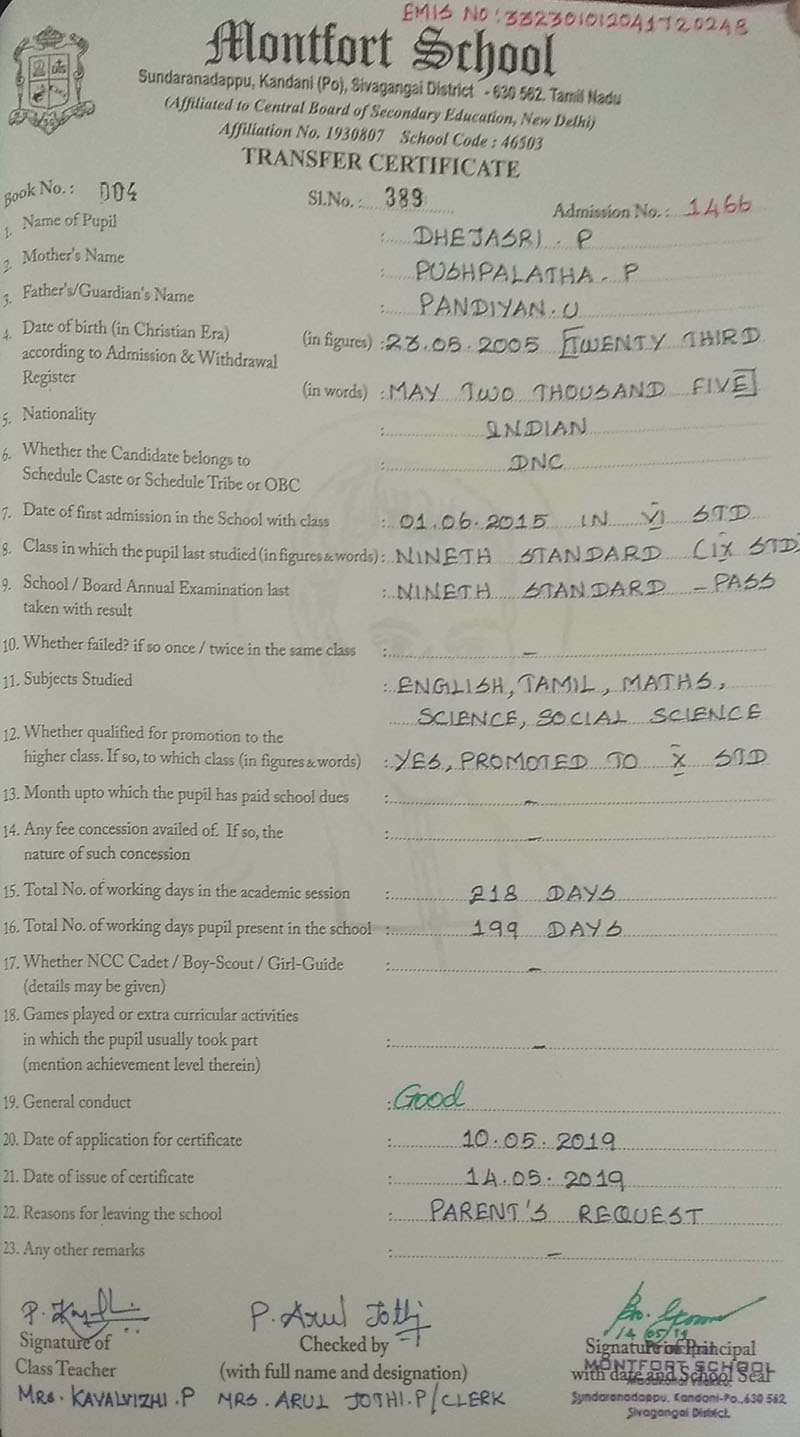 EMIS NO: 332301012041720248
Montfort School
Sundaranadappu, Kandani (Po), Sivagangai District - 630 562. Tamil Nadu
(Affiliated to Central Board of Secondary Education, New Delhi)
Affiliation No. 1930807 School Code : 46503
TRANSFER CERTIFICATE
Book No.: 004 Sl.No.: 389 Admission No.: 1466
1. Name of Pupil : DHEJASRI. P
2. Mother's Name : PUSHPALATHA. P
3. Father's/Guardian's Name : PANDIYAN. U
4. Date of birth (in Christian Era) (in figures) : 23.05.2005 [TWENTY THIRD
according to Admission & Withdrawal
Register (in words) : MAY TWO THOUSAND FIVE]
5. Nationality : INDIAN
6. Whether the Candidate belongs to : DNC
Schedule Caste or Schedule Tribe or OBC
7. Date of first admission in the School with class : 01.06.2015 IN VI STD
8. Class in which the pupil last studied (in figures & words) : NINETH STANDARD (IX STD)
9. School / Board Annual Examination last : NINETH STANDARD - PASS
taken with result
10. Whether failed? if so once / twice in the same class : -
11. Subjects Studied : ENGLISH, TAMIL, MATHS,
SCIENCE, SOCIAL SCIENCE
12. Whether qualified for promotion to the
higher class. If so, to which class (in figures & words) : YES, PROMOTED TO X STD
13. Month upto which the pupil has paid school dues : -
14. Any fee concession availed of. If so, the : -
nature of such concession
15. Total No. of working days in the academic session : 218 DAYS
16. Total No. of working days pupil present in the school : 199 DAYS
17. Whether NCC Cadet / Boy-Scout / Girl-Guide : -
(details may be given)
18. Games played or extra curricular activities
in which the pupil usually took part : -
(mention achievement level therein)
19. General conduct : Good
20. Date of application for certificate : 10.05.2019
21. Date of issue of certificate : 14.05.2019
22. Reasons for leaving the school : PARENT'S REQUEST
23. Any other remarks : -
P. Arul Jothi
14/05/19
Signature of Checked by Signature of Principal
Class Teacher (with full name and designation) with date and School Seal
MONTFORT SCHOOL
MRS. KAYALVIZHI. P MRS. ARUL JOTHI. P/CLERK
Sundaranadappu, Kandani-Po., 630 562
Sivagangai District.